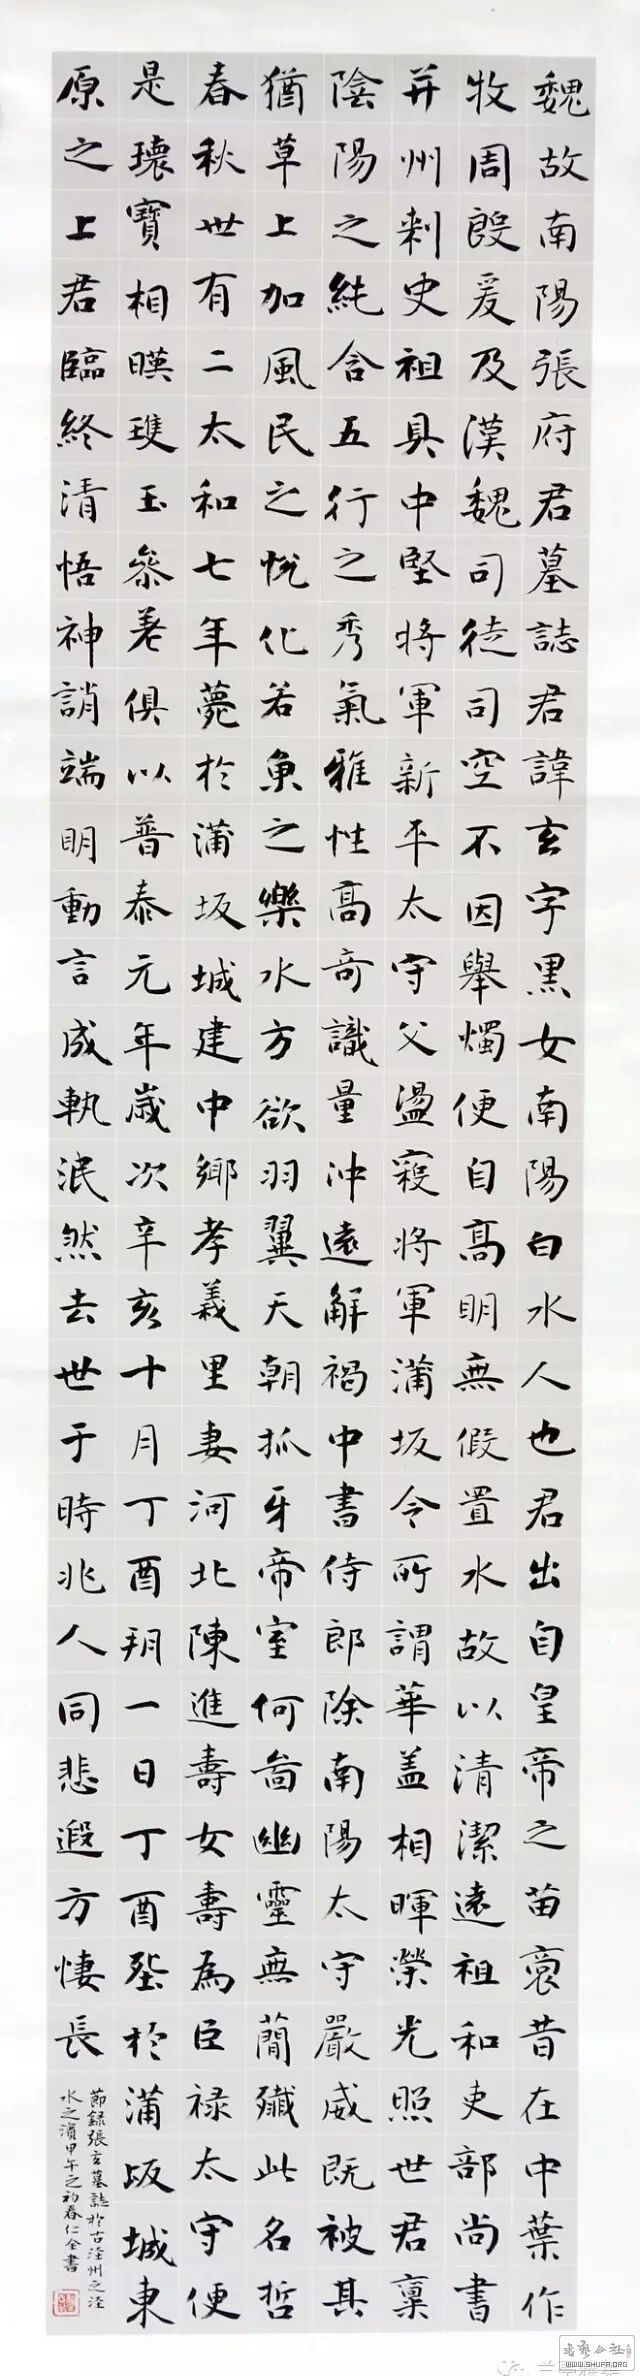 魏故南陽張府君墓誌君諱玄字黑女南陽白水人也君出自皇帝之苗裔昔在中葉作
牧周殷爰及漢魏司徒司空不因舉燭便自高明無假置水故以清潔遠祖和吏部尚書
并州剌史祖具中堅將軍新平太守父盪寇將軍蒲坂令所謂華盖相暉榮光照世君稟
陰陽之純含五行之秀氣雅性高奇識量沖遠解褐中書侍郎除南陽太守嚴威既被其
猶草上加風民之悅化若魚之樂水方欲羽翼天朝抓牙帝室何啚幽靈無簡殲此名哲
春秋世有二太和七年薨於蒲坂城建中鄉孝義里妻河北陳進壽女壽為臣禄太守便
是瓌寶相暎瓊玉參差俱以普泰元年歲次辛亥十月丁酉朔一日丁酉塟於蒲坂城東
原之上君臨終清悟神誚端明動言成軌泯然去世于時兆人同悲遐方悽長
節録張玄墓誌於古涇州之涇
水之濱甲午之初春仁全書
書藝公社
WWW.SHUFA.ORG